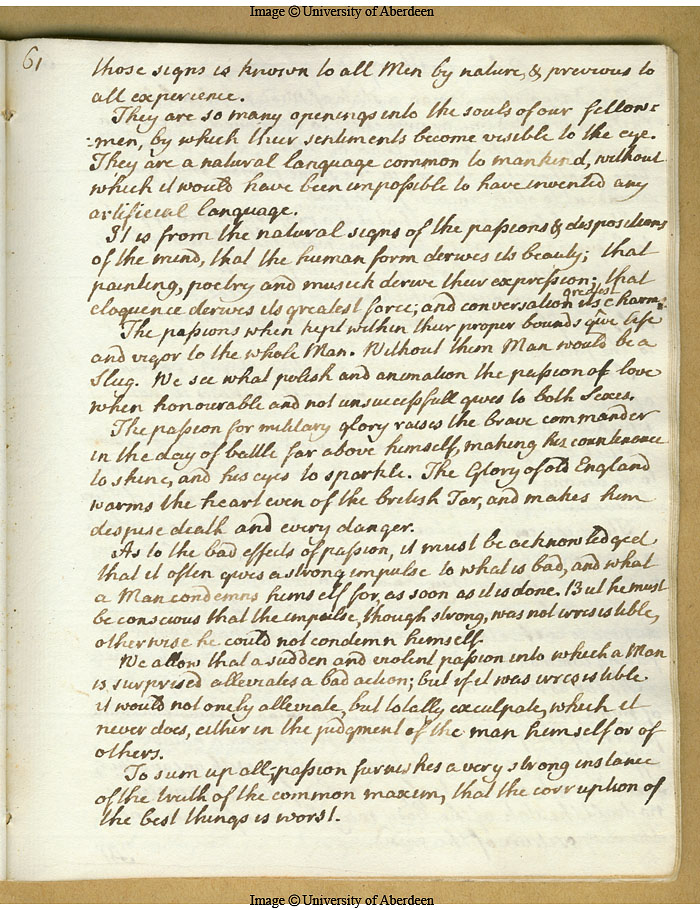 Image © University of Aberdeen
61
those signs is known to all Men by nature, & previous to
all experience.
They are so many openings into the souls of our fellow=
-men, by which their sentiments become visible to the eye.
They are a natural language common to mankind, without
which it would have been impossible to have invented any
artificial language.
It is from the natural signs of the passions & dispositions
of the mind, that the human form derives its beauty; that
painting, poetry and musick derive their expression; that
eloquence derives its greatest force; and conversation its greatest charm.
The passions when kept within their proper bounds give life
and vigor to the whole Man. Without them Man would be a
Slug. We see what polish and animation the passion of love
when honourable and not unsuccessfull gives to both Sexes.
The passion for military glory raises the brave commander
in the day of battle far above himself, making his countenance
to shine, and his eyes to sparkle. The Glory of old England
warms the heart even of the British Tar, and makes him
despise death and every danger.
As to the bad effects of passion, it must be acknowledged
that it often gives a strong impulse to what is bad, and what
a Man condemns himself for, as soon as it is done. But he must
be conscious that the impulse, though strong, was not irresistible,
otherwise he could not condemn himself.
We allow that a sudden and violent passion into which a Man
is surprised alleviates a bad action; but if it was irresistible
it would not onely alleviate, but totally exculpate, which it
never does, either in the judgment of the man himself or of
others.
To sum up all, passion furnishes a very strong instance
of the truth of the common maxim, that the corruption of
the best things is worst.
Image © University of Aberdeen